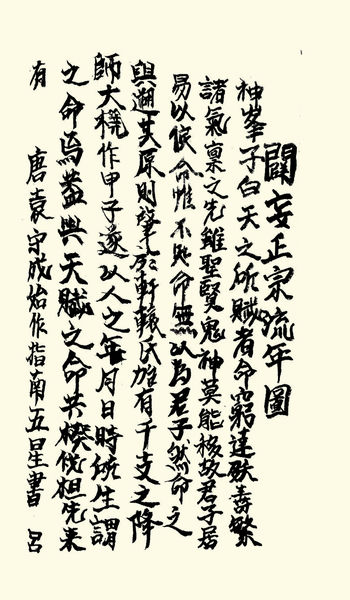 闢妄正宗流年圖
神峯子曰天之所賦者命窮達殀壽繫
諸氣稟之先雖聖賢鬼神莫能移故君子居
易以俟命惟不知命無以為君子然命之
與遡其原則肇於軒轅氏始有干支之降
師大橈作甲子遂以人之年月日時所生謂
之命焉蓋與天賦之命共揆先秦
有 唐袁守成始作指南五星書 呂